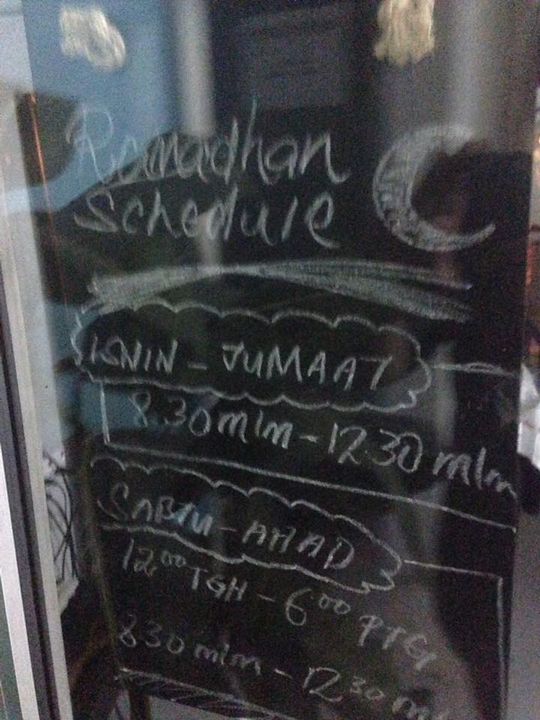 Ramadhan
Schedule
ISNIN - JUMAAT
8.30 mlm - 12.30 mlm
SABTU - AHAD
12⁰⁰ TGH - 6⁰⁰ PTG
830 mlm - 12³⁰